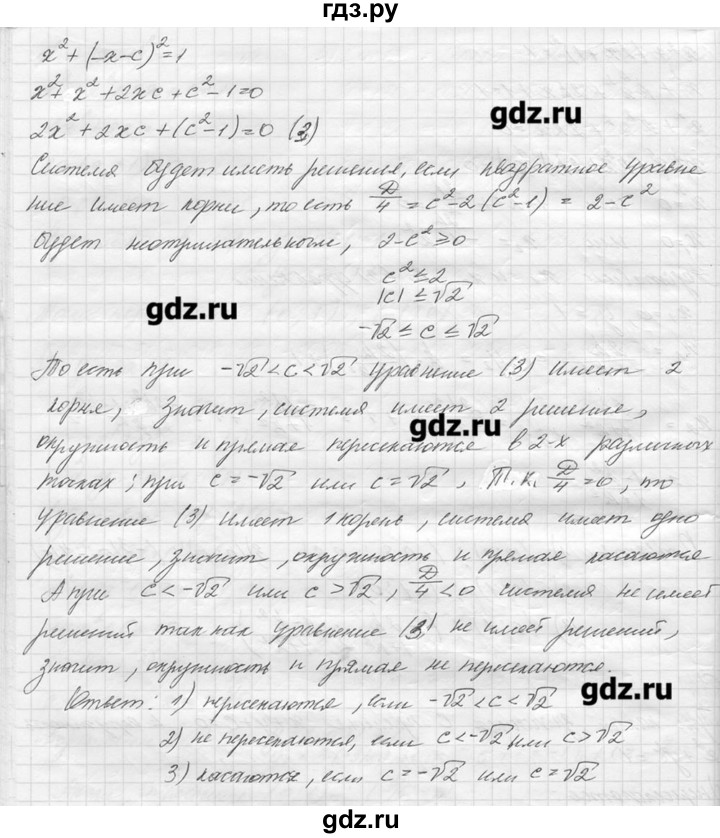 гдз.ру
x² + (-x-c)² = 1
x² + x² + 2xc + c² - 1 = 0
2x² + 2xc + (c² - 1) = 0 (3)
gdz.ru
Система будет иметь решения, если квадратное уравне
ние имеет корни, то есть D/4 = c² - 2(c² - 1) = 2 - c²
будет неотрицательным, 2 - c² ≥ 0
c² ≤ 2
gdz.ru
|c| ≤ √2
-√2 ≤ c ≤ √2
То есть при -√2 < c < √2 уравнение (3) имеет 2
корня, значит, система имеет 2 решение,
gdz.ru
окружность и прямая пересекаются в 2-х различных
точках; при c = -√2 или c = √2, т.к. D/4 = 0, то
уравнение (3) имеет 1 корень, система имеет одно
решение, значит, окружность и прямая касаются
А при c < -√2 или c > √2, D/4 < 0 система не имеет
решений так как уравнение (3) не имеет решений,
значит, окружность и прямая не пересекаются.
gdz.ru
Ответ: 1) пересекаются, если -√2 < c < √2
2) не пересекаются, если c < -√2 или c > √2
3) касаются, если c = -√2 или c = √2
gdz.ru